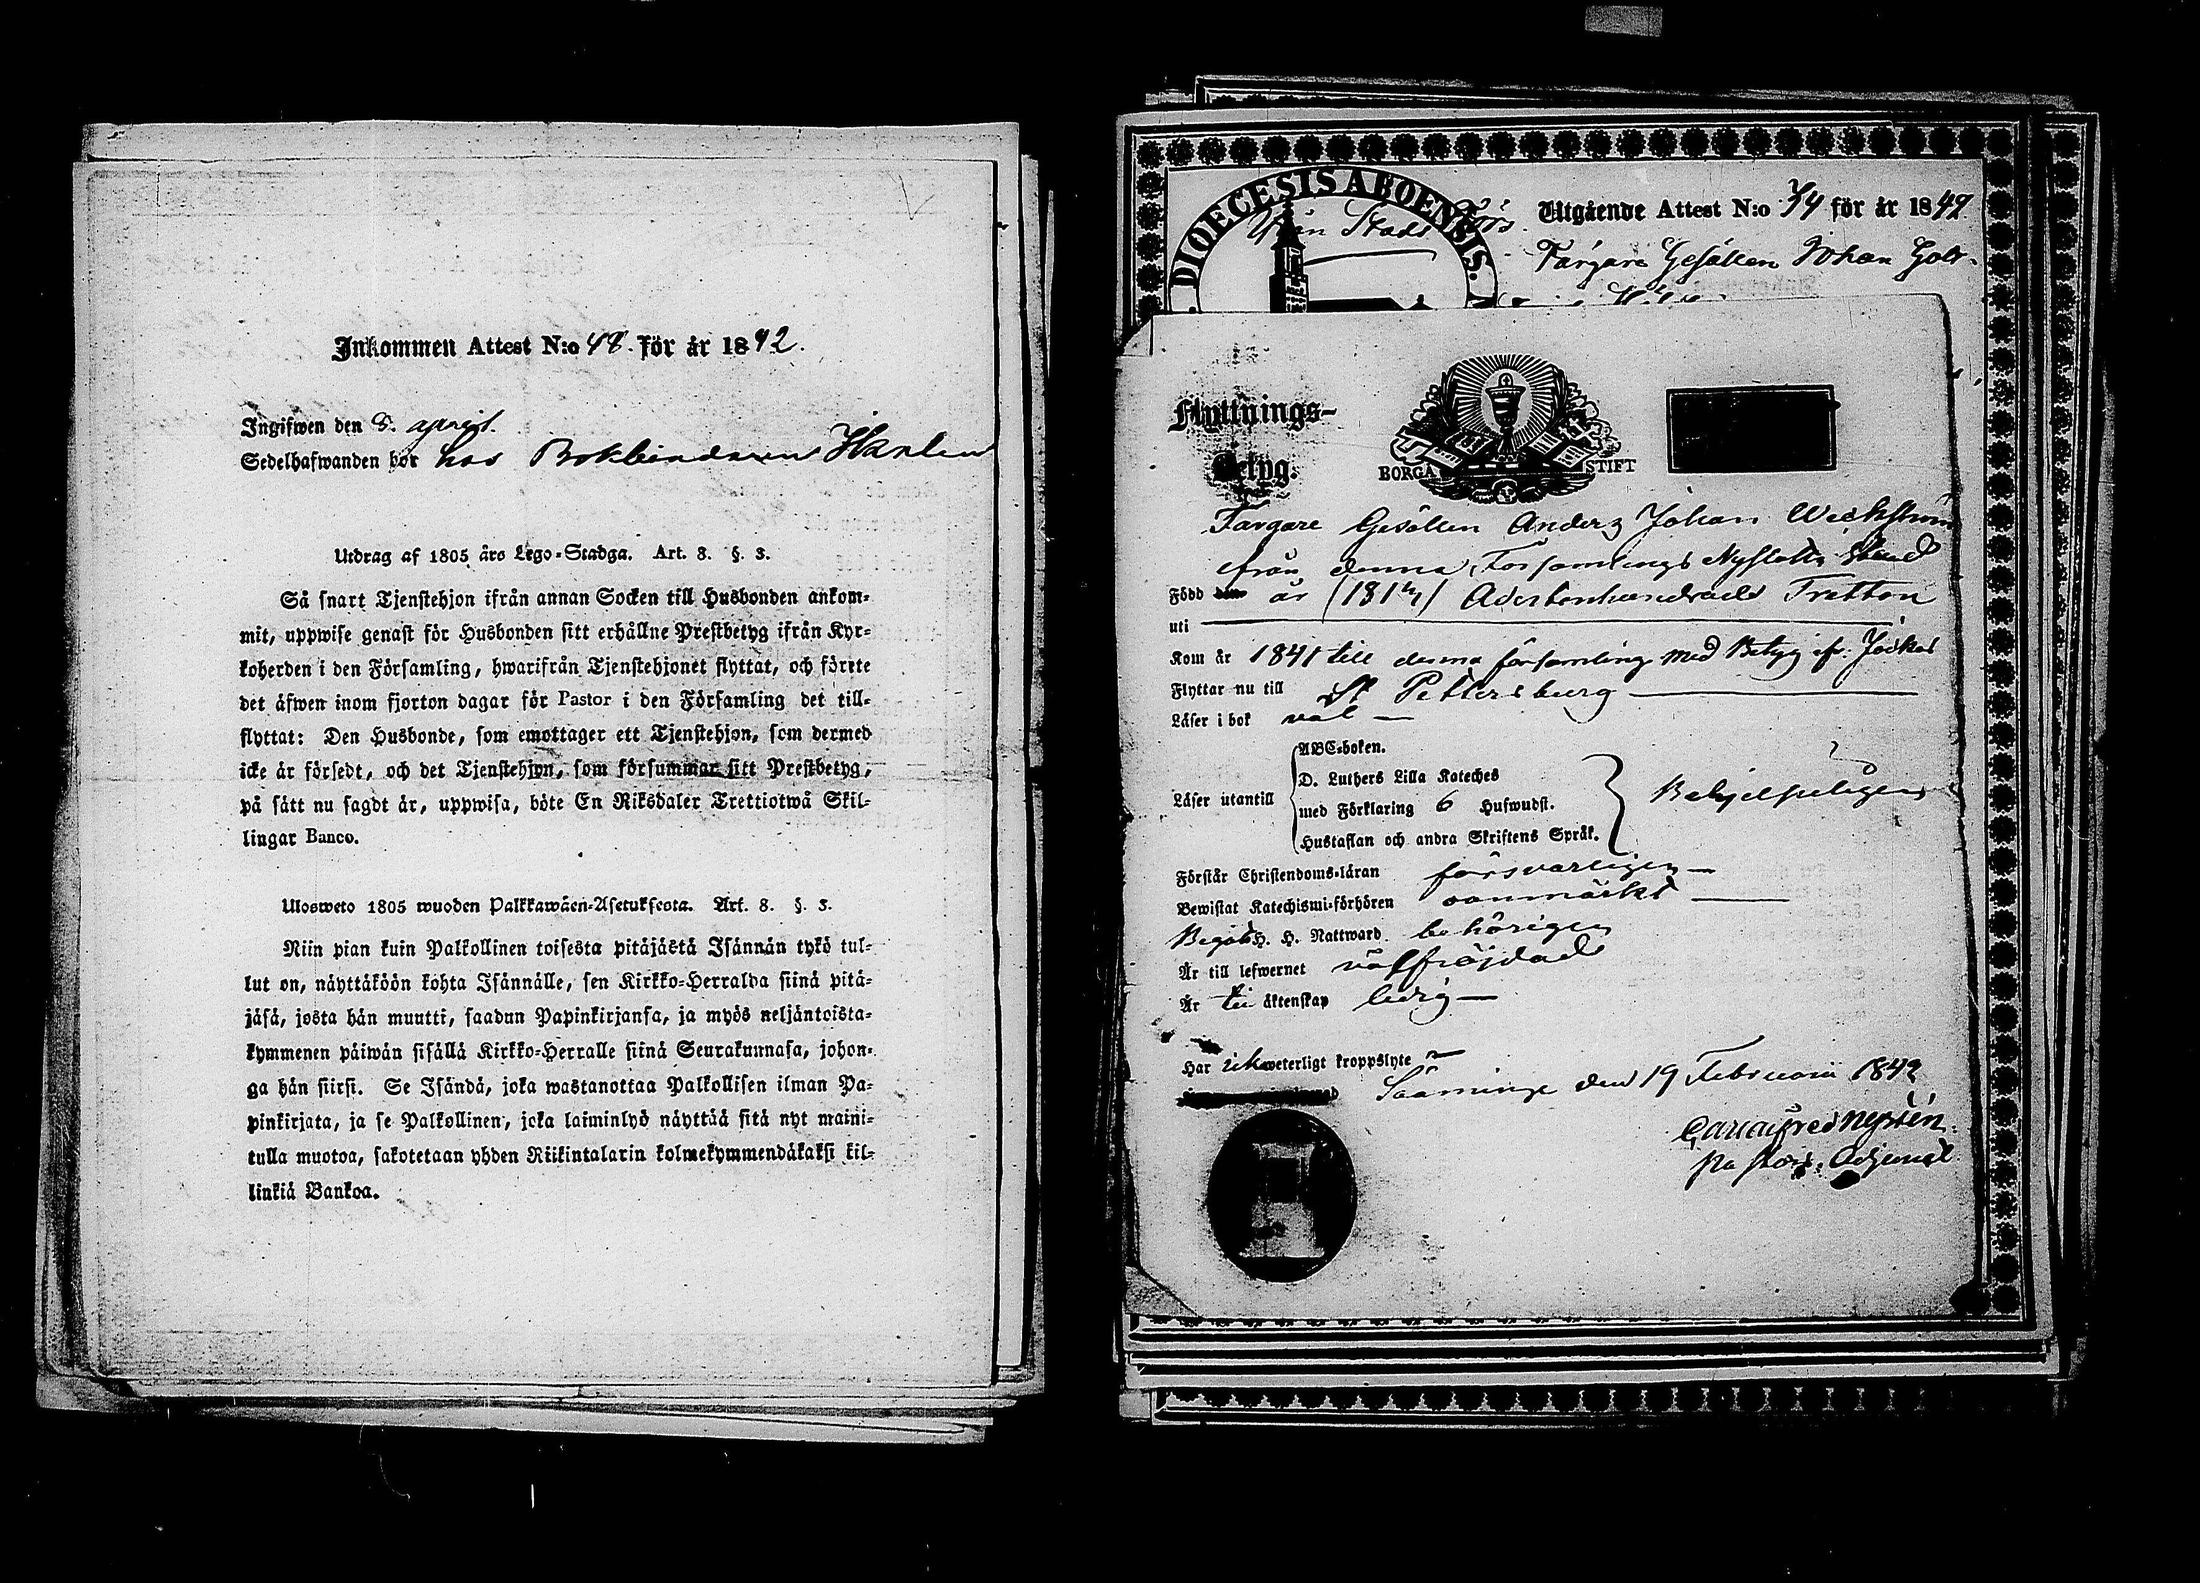 Inkommen Attest N:o 48. för år 1842.
Ingifwen den 8. april.
Sedelhafwanden bor hos Bokbindaren
Utdrag af 1805 års Lego-Stadga. Art. 8. §. 3.
Så snart Tjenstehjon ifrån annan Socken till Husbonden ankom-
mit, uppwise genast för Husbonden sitt erhållne Prestbetyg ifrån Kyr-
koherden i den Församling, hwarifrån Tjenstehjonet flyttat, och förete
det äfwen inom fjorton dagar för Pastor i den Församling det till-
flyttat: Den Husbonde, som emottager ett Tjenstehjon, som dermed
icke är försedt, och det Tjenstehjon, som försummar sitt Prestbetyg,
på sätt nu sagdt är, uppwisa, böte En Riksdaler Trettiotwå Skil-
lingar Banco.
Ulosweto 1805 wuoden Palkkawäen-Asetuksesta. Art. 8. §. 3.
Niin pian kuin Palkollinen toisesta pitäjästä Isännän tykö tul-
lut on, näyttäköön kohta Isännälle, sen Kirkko-Herralda siinä pitä-
jäsä, josta hän muutti, saadun Papinkirjansa, ja myös neljäntoista-
kymmenen päiwän sisällä Kirkko-Herralle siinä Seurakunnasa, johon-
ga hän siirsi. Se Isändä, joka wastanottaa Palkollisen ilman Pa-
pinkirjata, ja se Palkollinen, joka laiminlyö näyttää sitä nyt maini-
tulla muotoa, sakotetaan yhden Riikintalarin kolmekymmendäkaksi kil-
linkiä Bankoa.
DIOECESIS ABOENSIS.
Utgående Attest N:o 34 för år 1842
Färgare Gesällen Johan
Flyttnings-
Betyg.
BORGÅ STIFT
Färgare Gesällen Anders Johan Weckström
ifrån denna Församlings Nyslotts Stad
Född den år (1813) Adertonhundrade Tretton
uti
Kom år 1841 till denna församling med Betyg ifr. Jockas
Flyttar nu till St Pettersburg
Läser i bok väl
Läser utantill
ABC-boken.
D. Luthers Lilla Kateches
med Förklaring 6 Hufwudst.
Hustaflan och andra Skriftens Språk.
Behjelpeligen
Förstår Christendoms-läran försvarligen
Bewistat Katechismi-förhören oanmärkt
Begått H. H. Nattward behörigen
Är till lefwernet välfräjdad
Är till äktenskap ledig
Har icke weterligt kroppslyte
Sääminge den 19 Februarii 1842
Carl Alfred Nystén.
Pastors-Adjunct